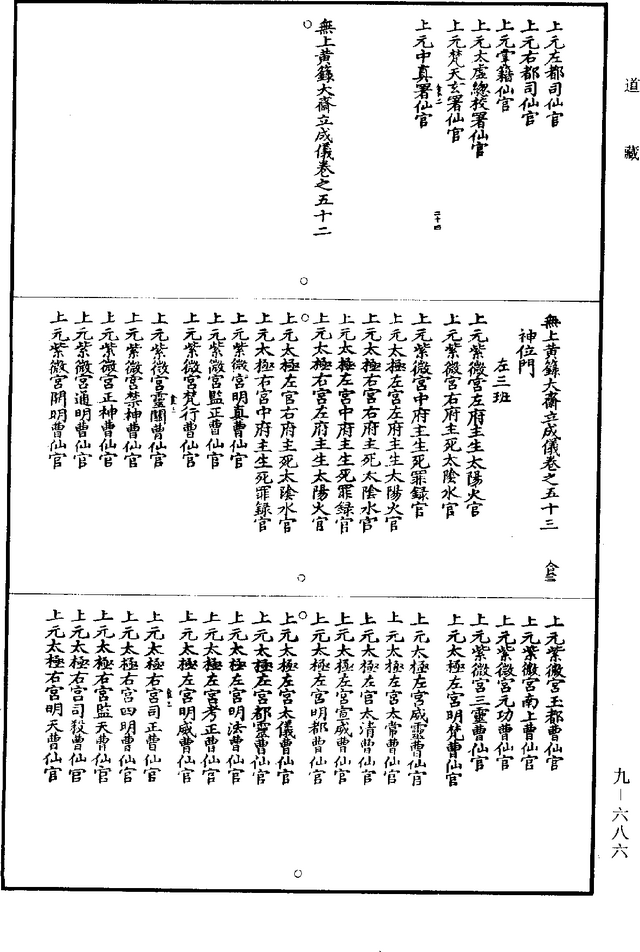 道藏
上元左都司仙官
上元右都司仙官
上元掌籍仙官
上元太虛總校署仙官
上元梵天玄署仙官
二十四
上元中真署仙官
無上黃籙大齋立成儀卷之五十二
無上黃籙大齋立成儀卷之五十三
神位門
左三班
上元紫微宮左府主生太陽火官
上元紫微宮右府主死太陰水官
上元紫微宮中府主生死罪録官
上元太極左宮左府主生太陽火官
上元太極左宮右府主死太陰水官
上元太極左宮中府主生死罪録官
上元太極右宮左府主生太陽火官
上元太極左官右府主死太陰水官
上元太極右宮中府主生死罪録官
上元紫微宮明真曹仙官
上元紫微宮監正曹仙官
上元紫微宮梵行曹仙官
上元紫微宮靈關曹仙官
上元紫微宮禁神曹仙官
上元紫微宮正神曹仙官
上元紫微宮通明曹仙官
上元紫微宮開明曹仙官
上元紫微宮玉都曹仙官
上元紫微宮南上曹仙官
上元紫微宮元功曹仙官
上元紫微宮三靈曹仙官
上元太極左宮明梵曹仙官
上元太極左宮威靈曹仙官
上元太極左宮太常曹仙官
上元太極左官太清曹仙官
上元太極左宮宣威曹仙官
上元太極左宮明都曹仙官
上元太極左宮太儀曹仙官
上元太極左宮都靈曹仙官
上元太極左宮明法曹仙官
上元太極左宮考正曹仙官
上元太極左宮明威曹仙官
上元太極右宮司正曹仙官
上元太極右宮四明曹仙官
上元太極右宮監天曹仙官
上元太極右宮司殺曹仙官
上元太極右宮明天曹仙官
九－六八六